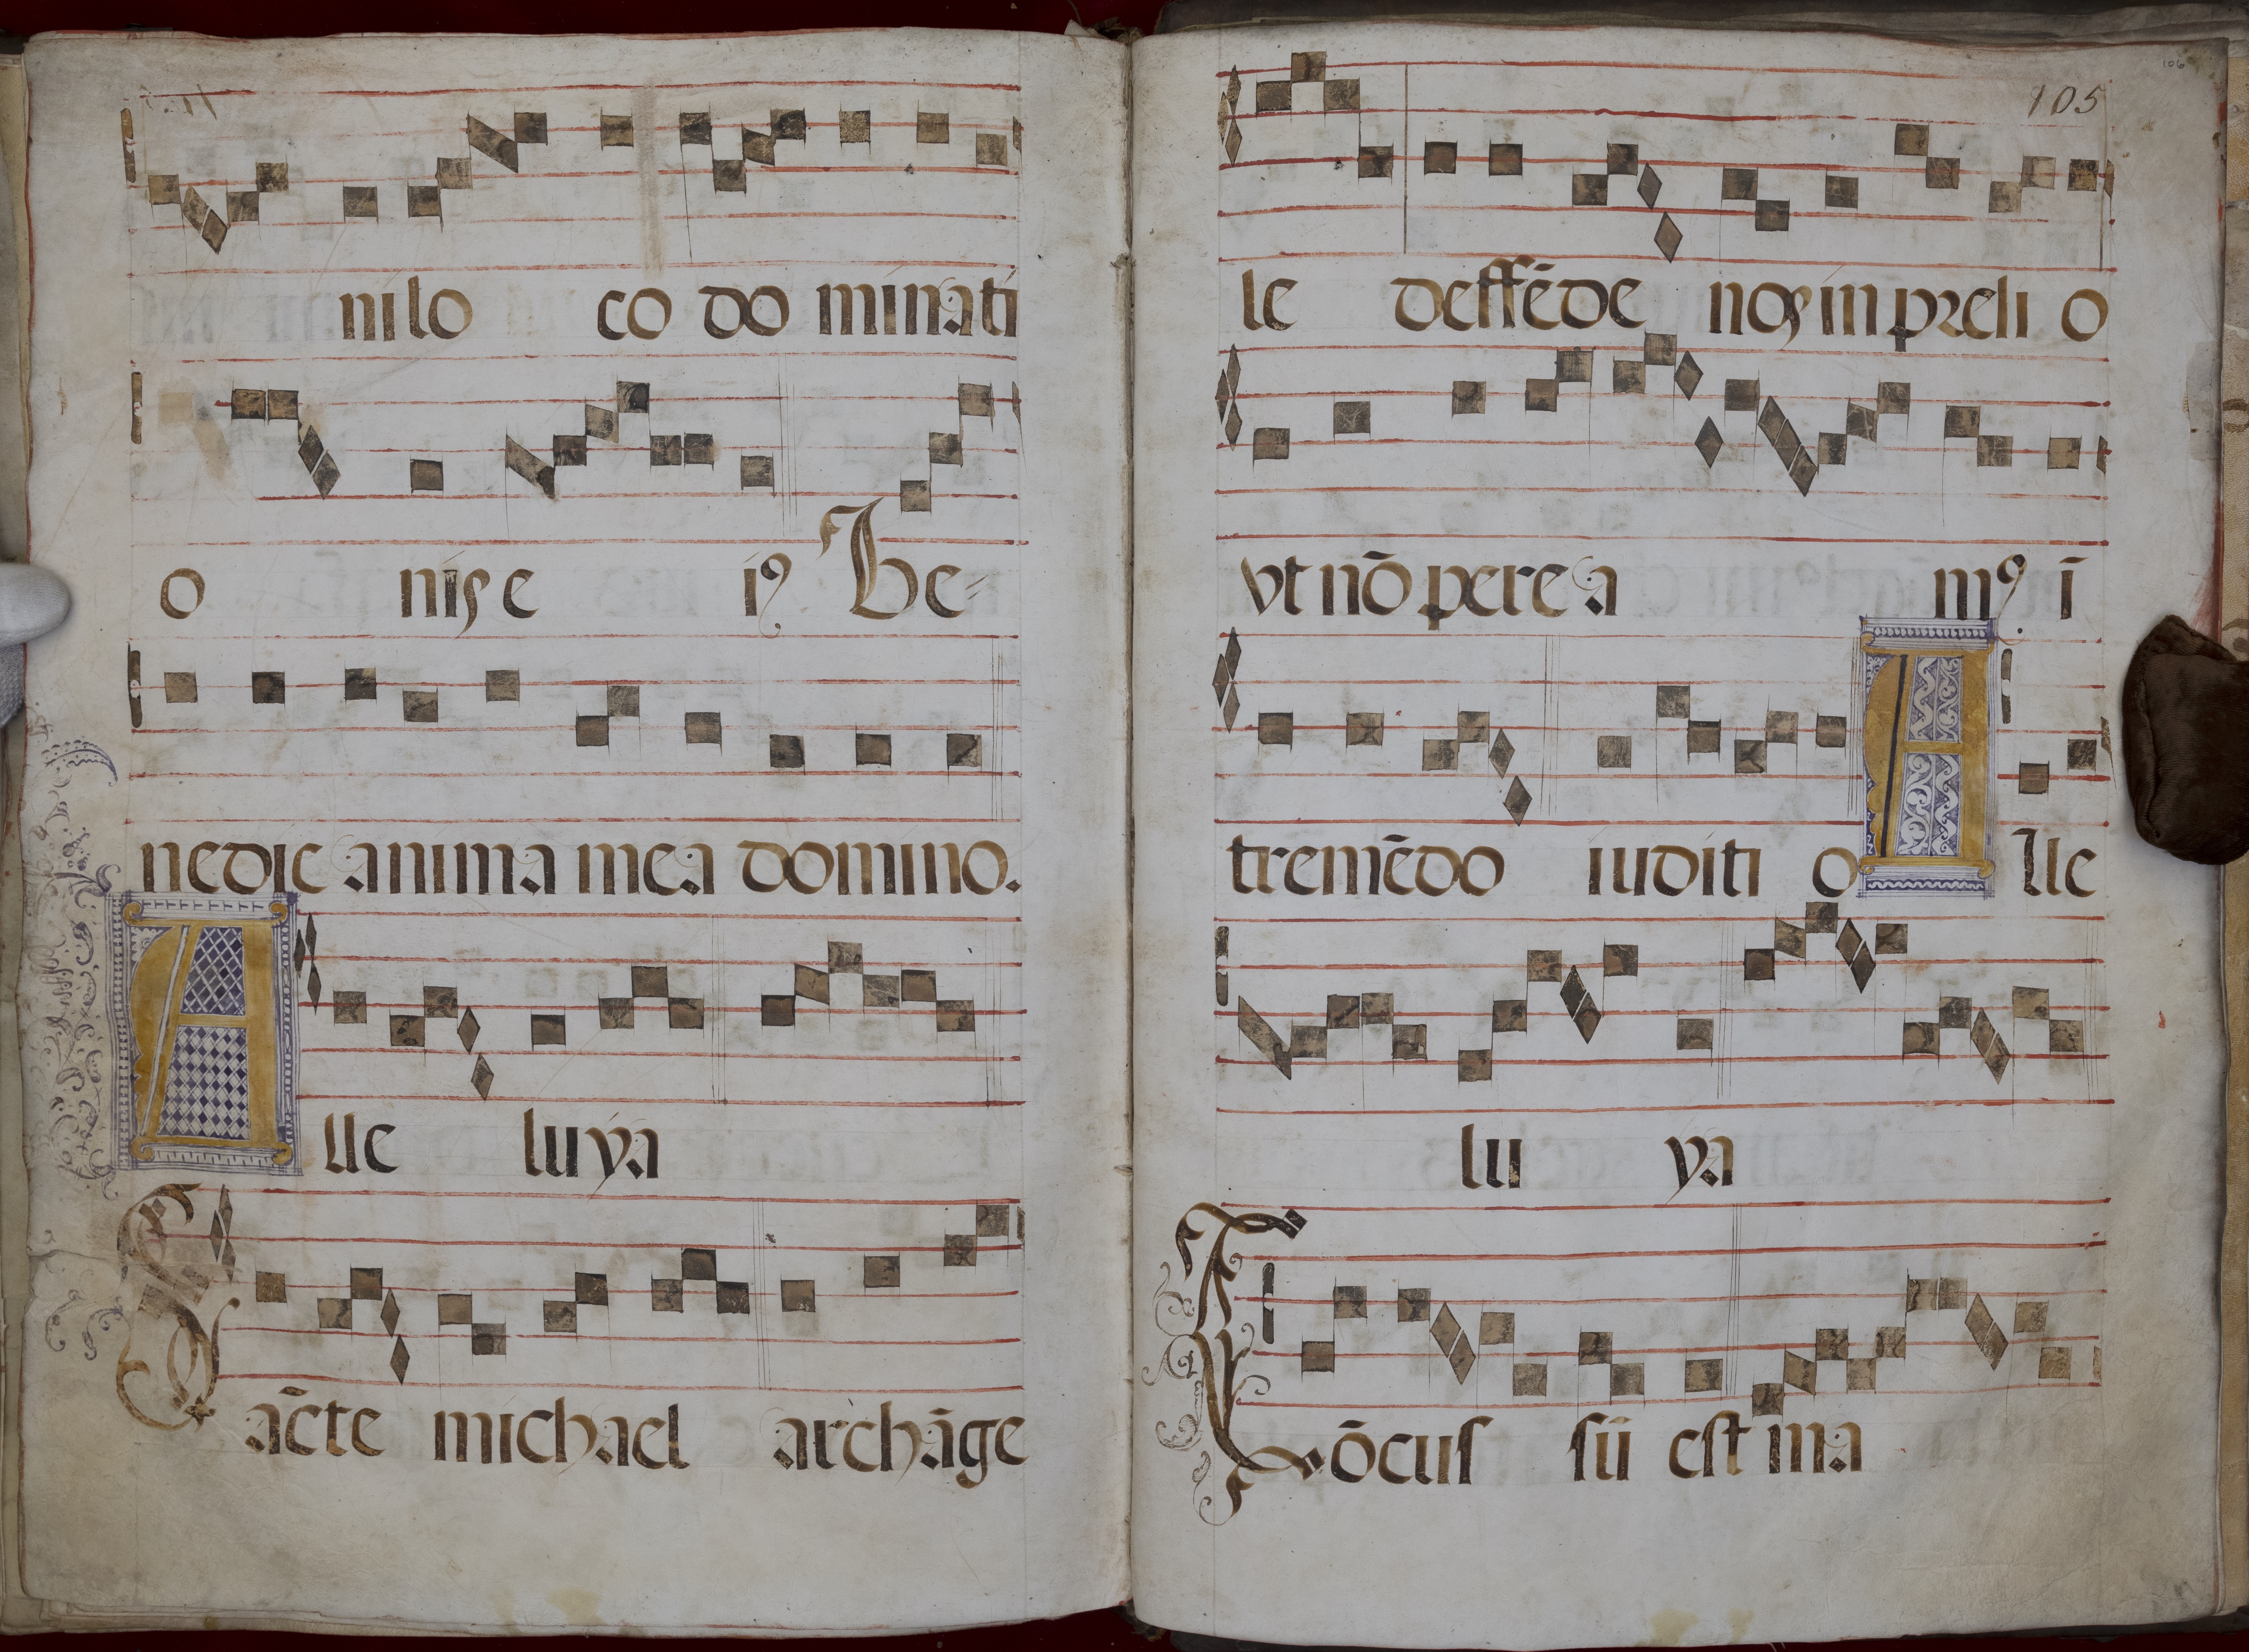 ni lo co do minati
o niſ e iꝰ Be-
nedic anima mea domino.
A lle luya
Sãcte michael archãge
106
105
le deffẽde noſ in preli o
vt nõ perea mꝰ ĩ
tremẽdo iuditi o A lle
lu ya
Lõcuſ iſtẽ eſt ma